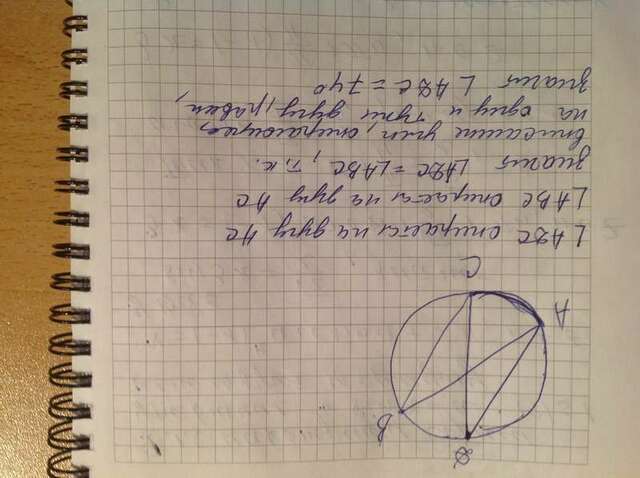 D
B
A
C
∠ADC опирается на дугу AC
∠ABC опирается на дугу AC
значит ∠ADC = ∠ABC, т.к.
вписанные углы, опирающиеся
на одну и ту же дугу, равны,
значит ∠ADC = 74°